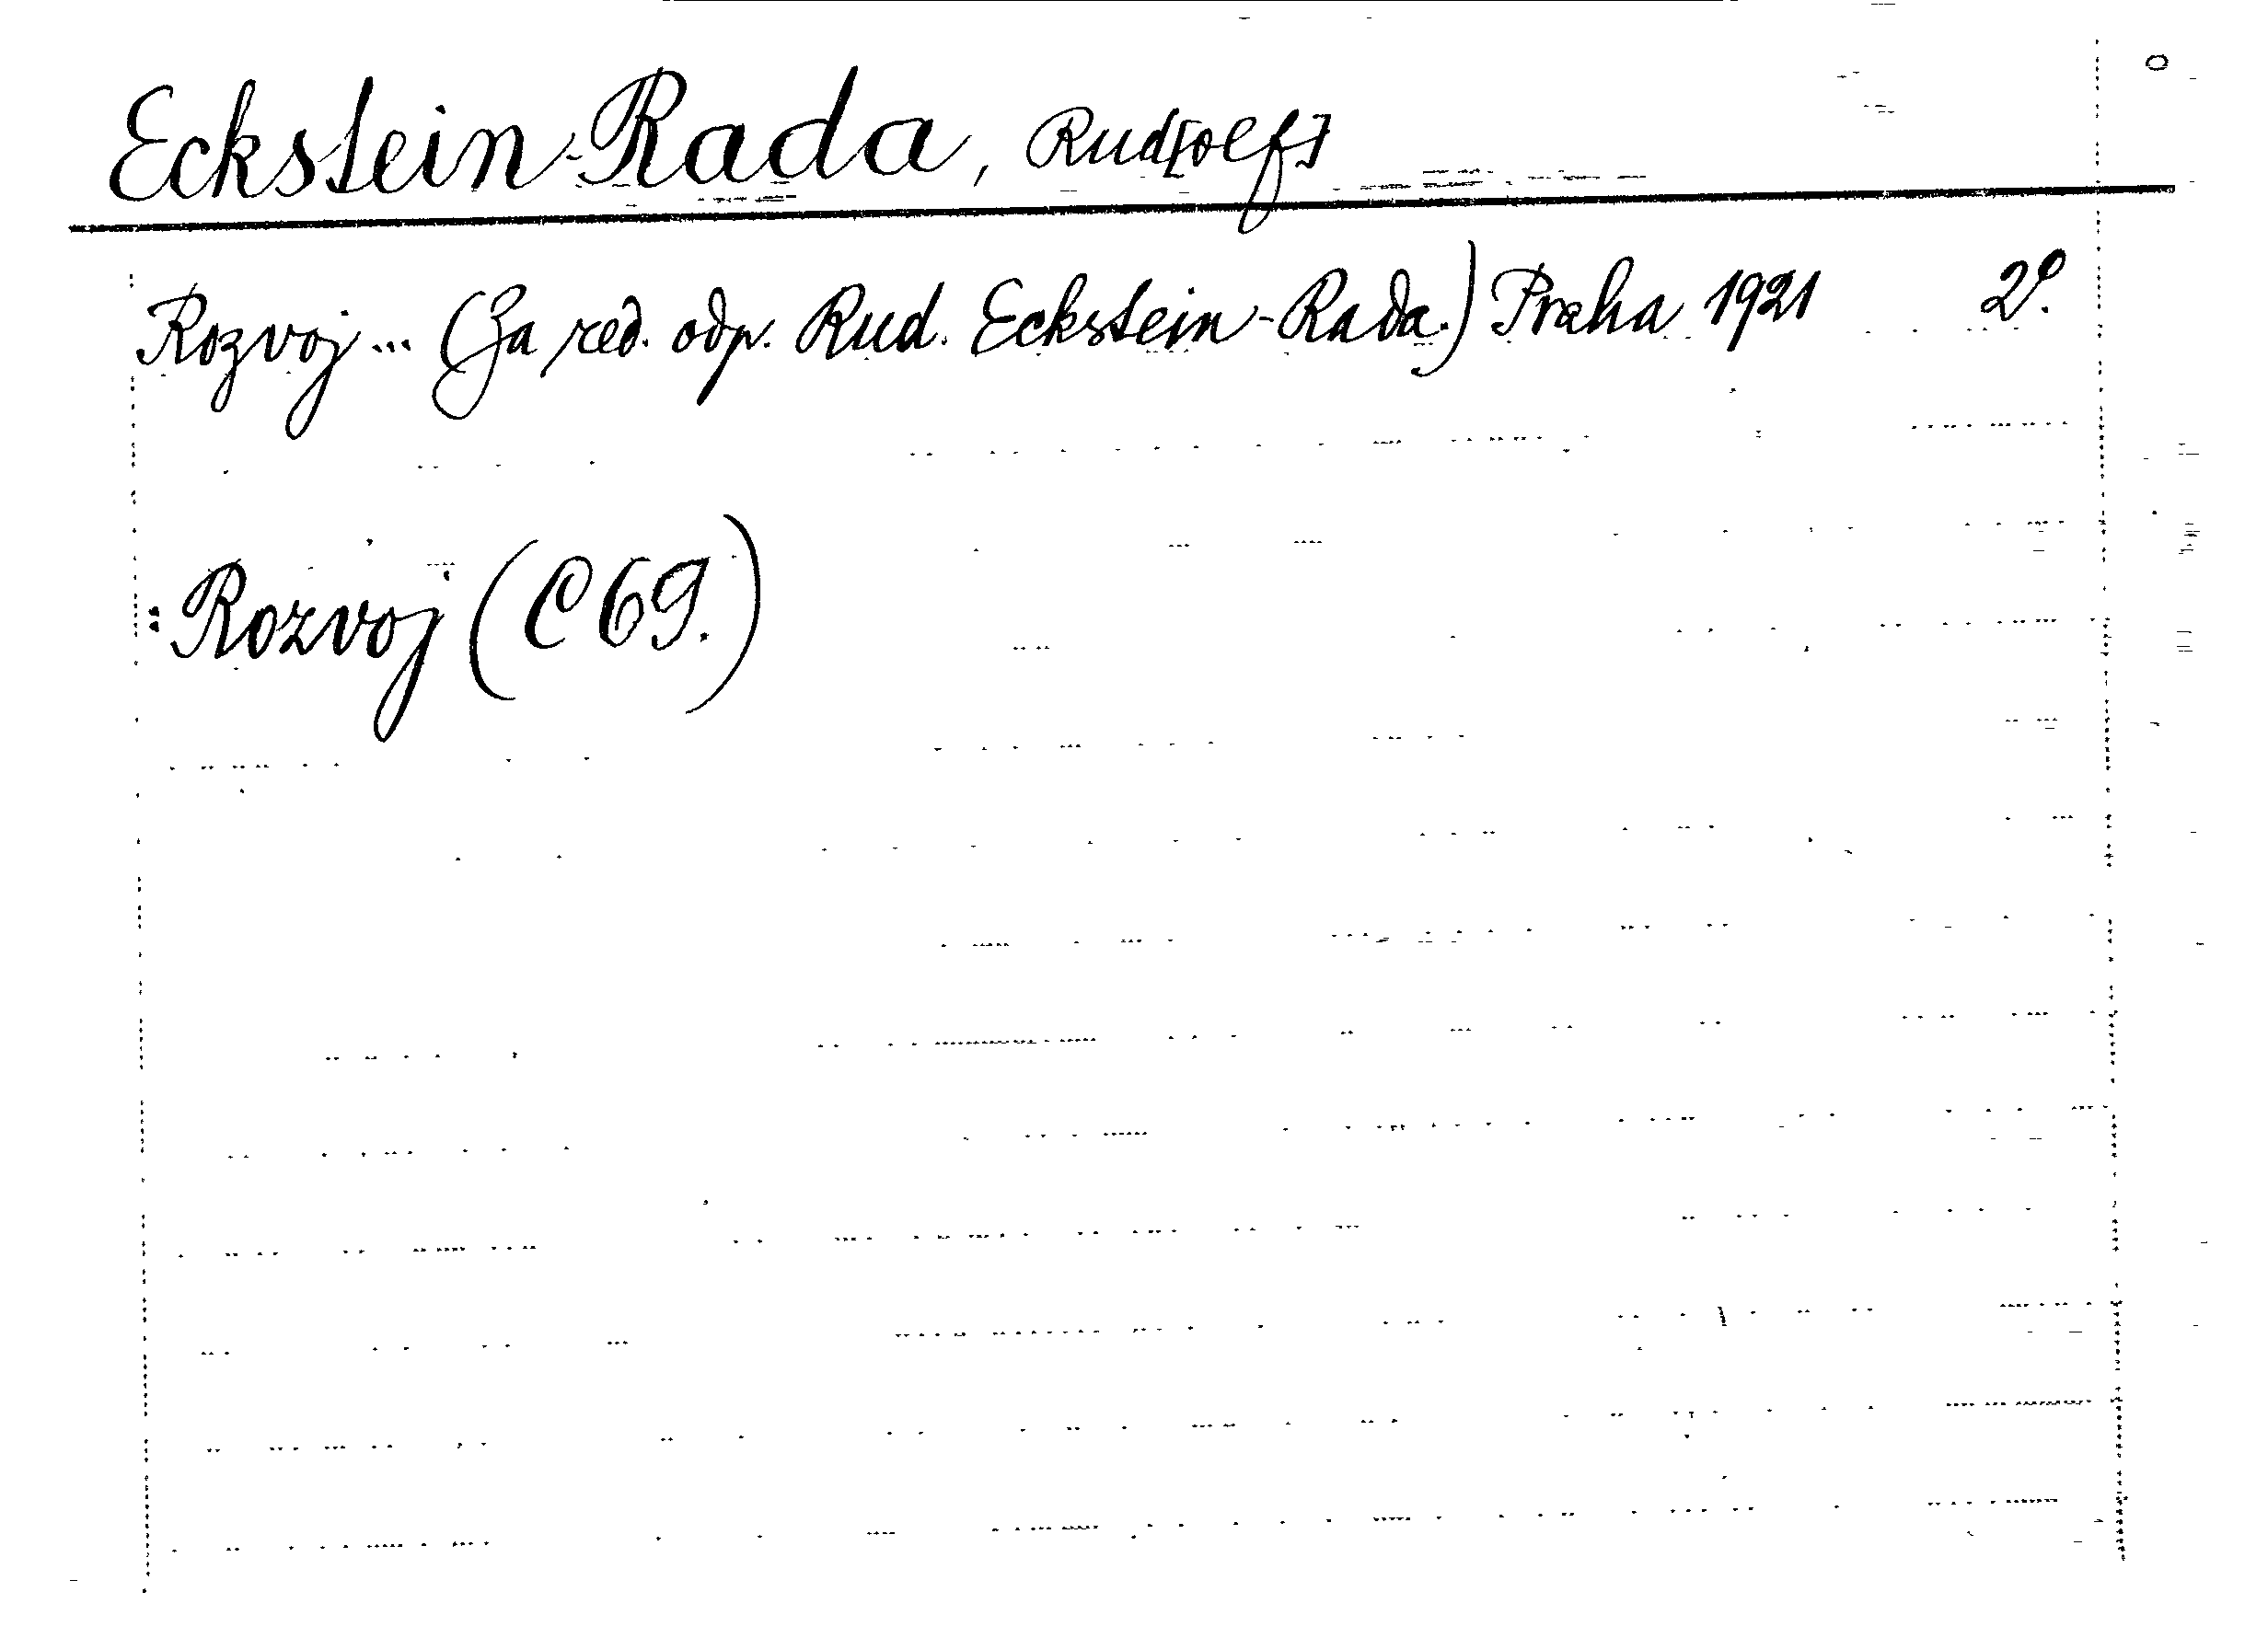 Eckstein-Rada, Rud[olf]
Rozvoj ... (Za red. odp. Rud. Eckstein-Rada.) Praha 1921 2°.
: Rozvoj (C 69.)